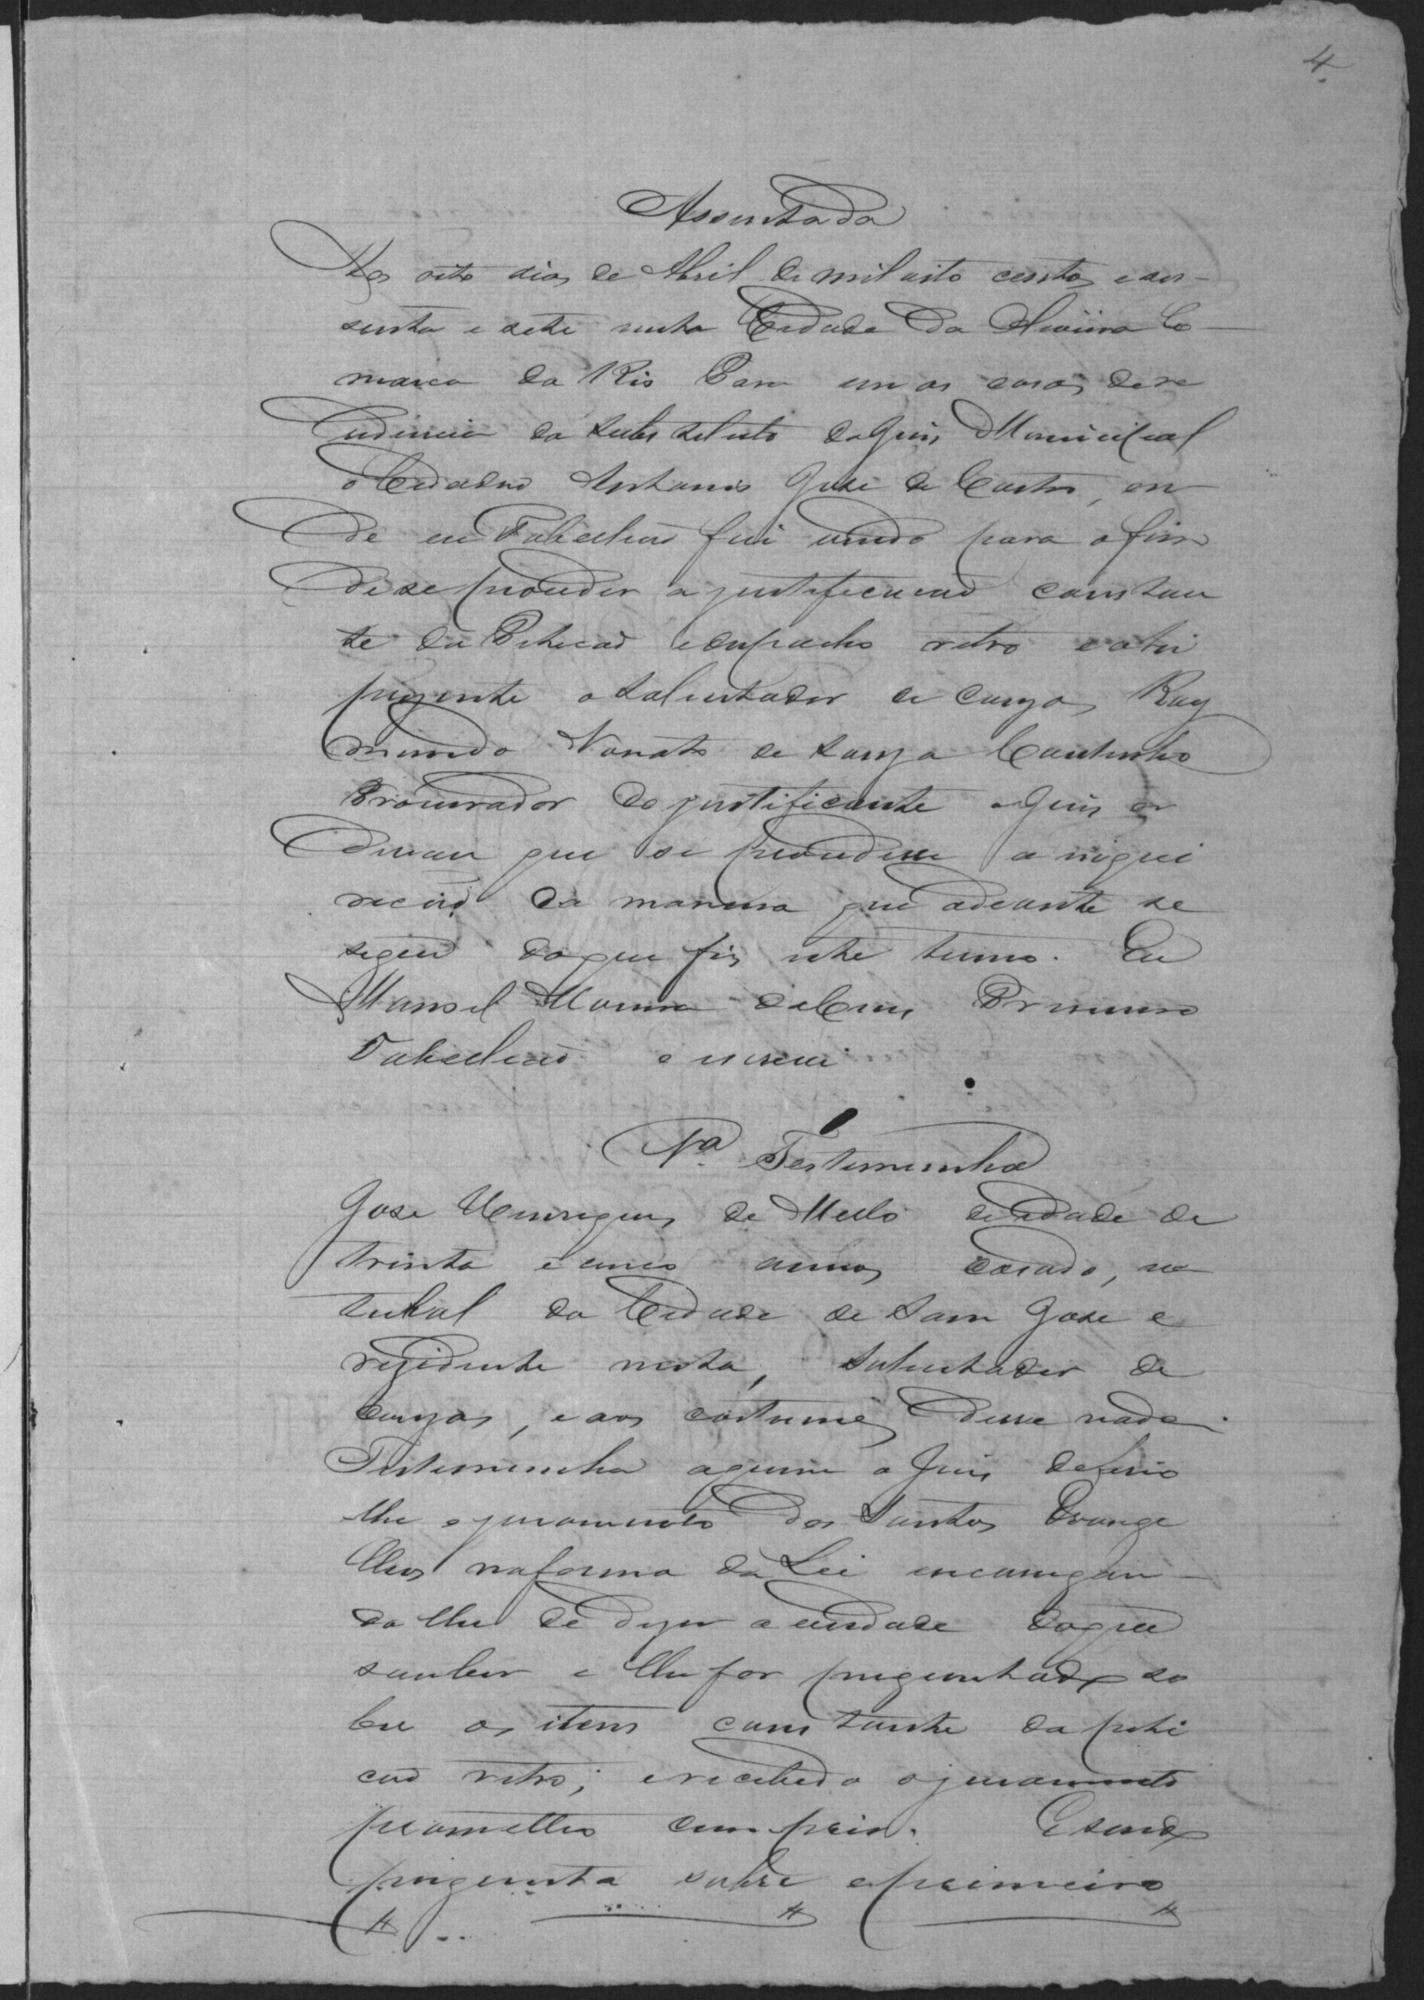 4.
Assentada
Aos oito dias de Abril de mil oito centos e ses-
senta e sete nesta Cidade da Co
marca do Rio em as casas de re
sidencia do substituto do Juis Municipal
o Cidadão Antonio Jose de Castro, on
de eu Tabelliaõ fui vindo para o fim
de se proceder a justificacaõ constan
te da Peticaõ e despacho retro e ahi
prezente o Solicitador de cauzas Ray
mundo Nonato de Souza Coutinho
Procurador do justificante o Juis or
denou que se procedesse a inquei
ricaõ da maneira que adeante se
segue do que fis este termo. Eu
Manoel da Cruz Primeiro
Tabelliaõ o escrevi.
1ª Testemunha
Jose Henriques de Mello de idade de
trinta e cinco annos casado, na
tural da Cidade de Sam Jose e
rezidente nesta, Solicitador de
cauzas, e aos costumes disse nada.
Testemunha aquem o Juis deferio
lhe o juramento dos Santos Evange
lhos na forma da Lei encarregan-
do lhe de dizer a verdade do que
souber e lhe for preguntado so
bre os itens constante da peti
caõ retro; e recebido o juramento
prometteo cumprir. E sendo
pregunta sobre o primeiro